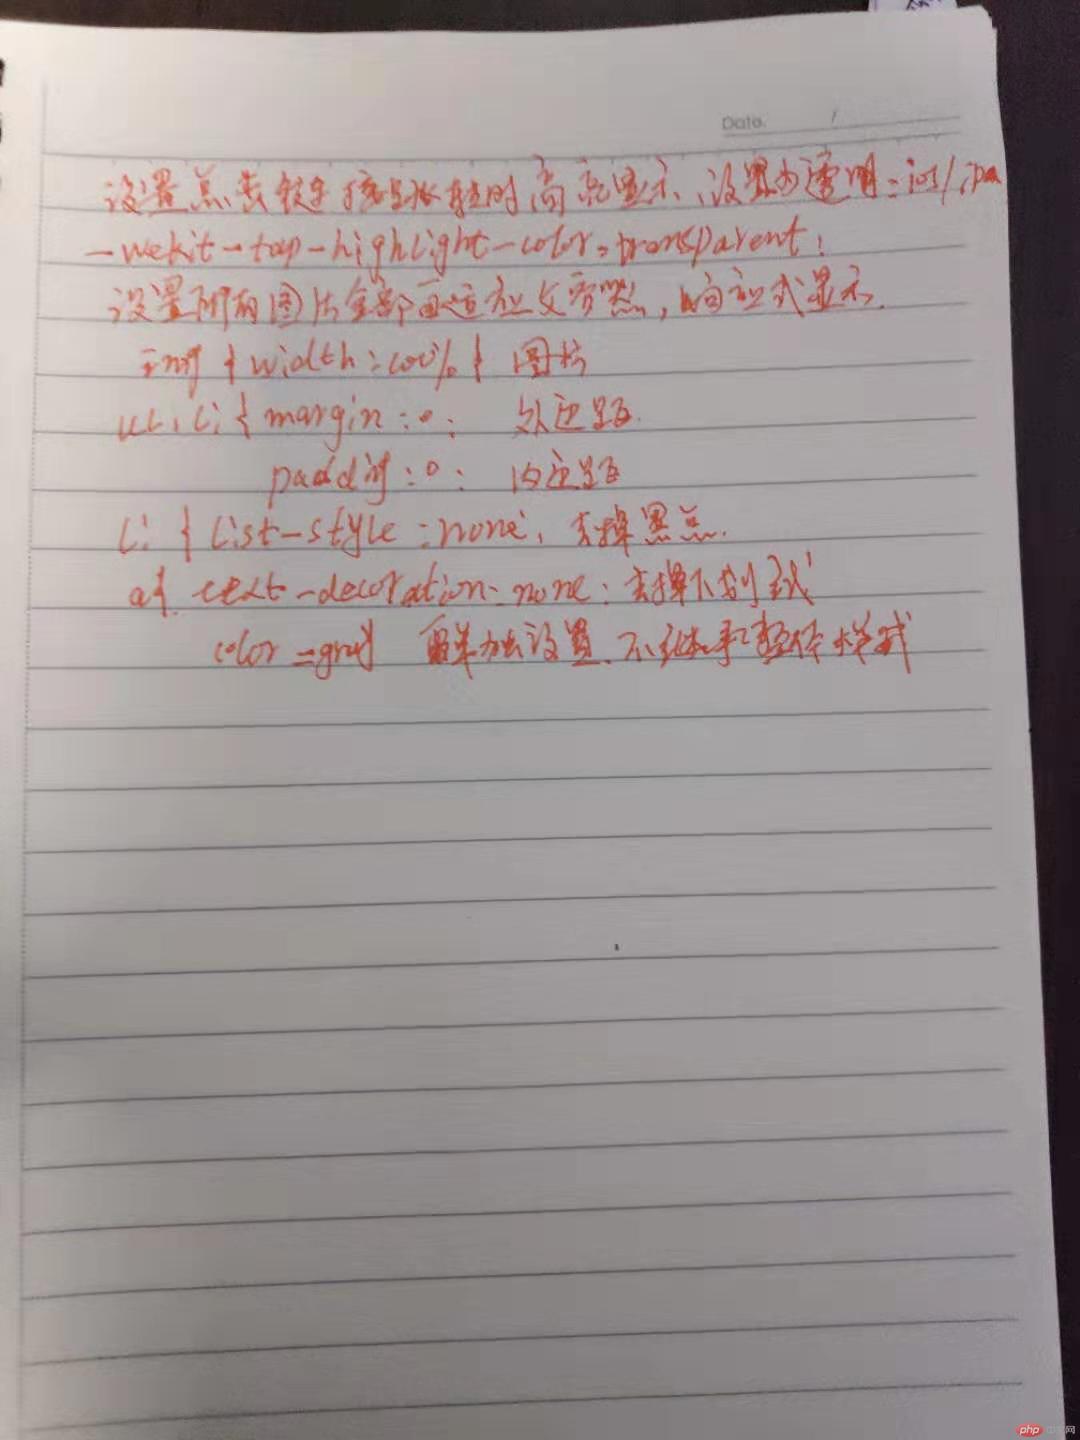 Date. /
设置点击链接 时高亮显示、设置为透明:ios/ipa
-wekit-tap-highlight-color:transparent;
设置所有图片全部自适应父容器,响应式显示.
img { width:100% } 图片
ul,li { margin:0; 外边距.
padding:0; 内边距
li { list-style:none, 去掉黑点.
a{ text-decoration:none; 去掉下划线
color:gray} 单独设置.不继承整体样式
php 中文网